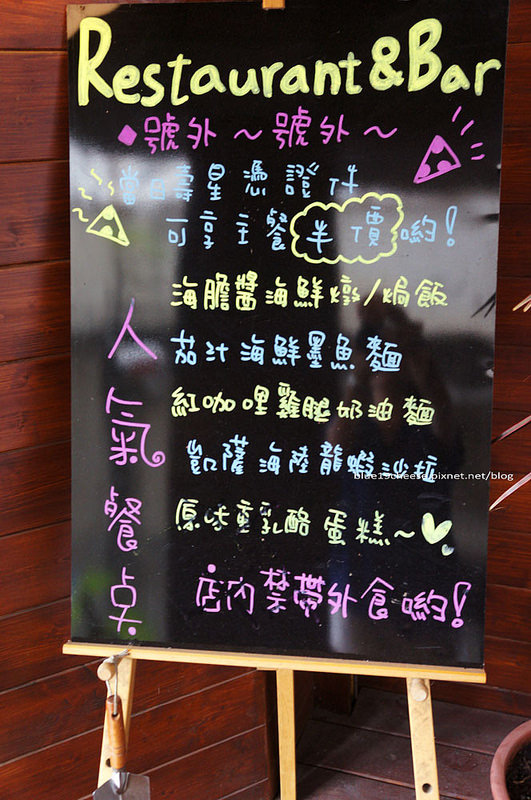 Restaurant&Bar
◆號外～號外～
當日壽星憑證件
可享主餐半價喲！
人氣餐点
海膽醬海鮮燉/焗飯
茄汁海鮮墨魚麵
紅咖哩雞腿奶油麵
凱薩海陸龍蝦沙拉
原味重乳酪蛋糕～
店內禁帶外食喲！
blue19cheese.pixnet.net/blog